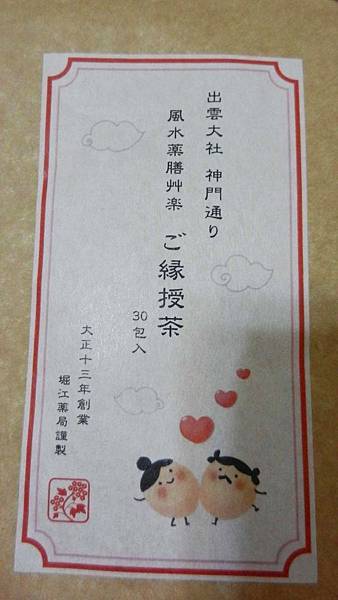 出雲大社 神門通り
風水薬膳艸楽 ご縁授茶
30包入
大正十三年創業
堀江薬局謹製